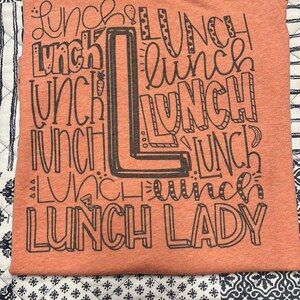 Lunch LUNCH
Lunch lunch
L
LUNCH LUNCH
LUNCH LUNCH
LUNCH lunch
LUNCH LADY